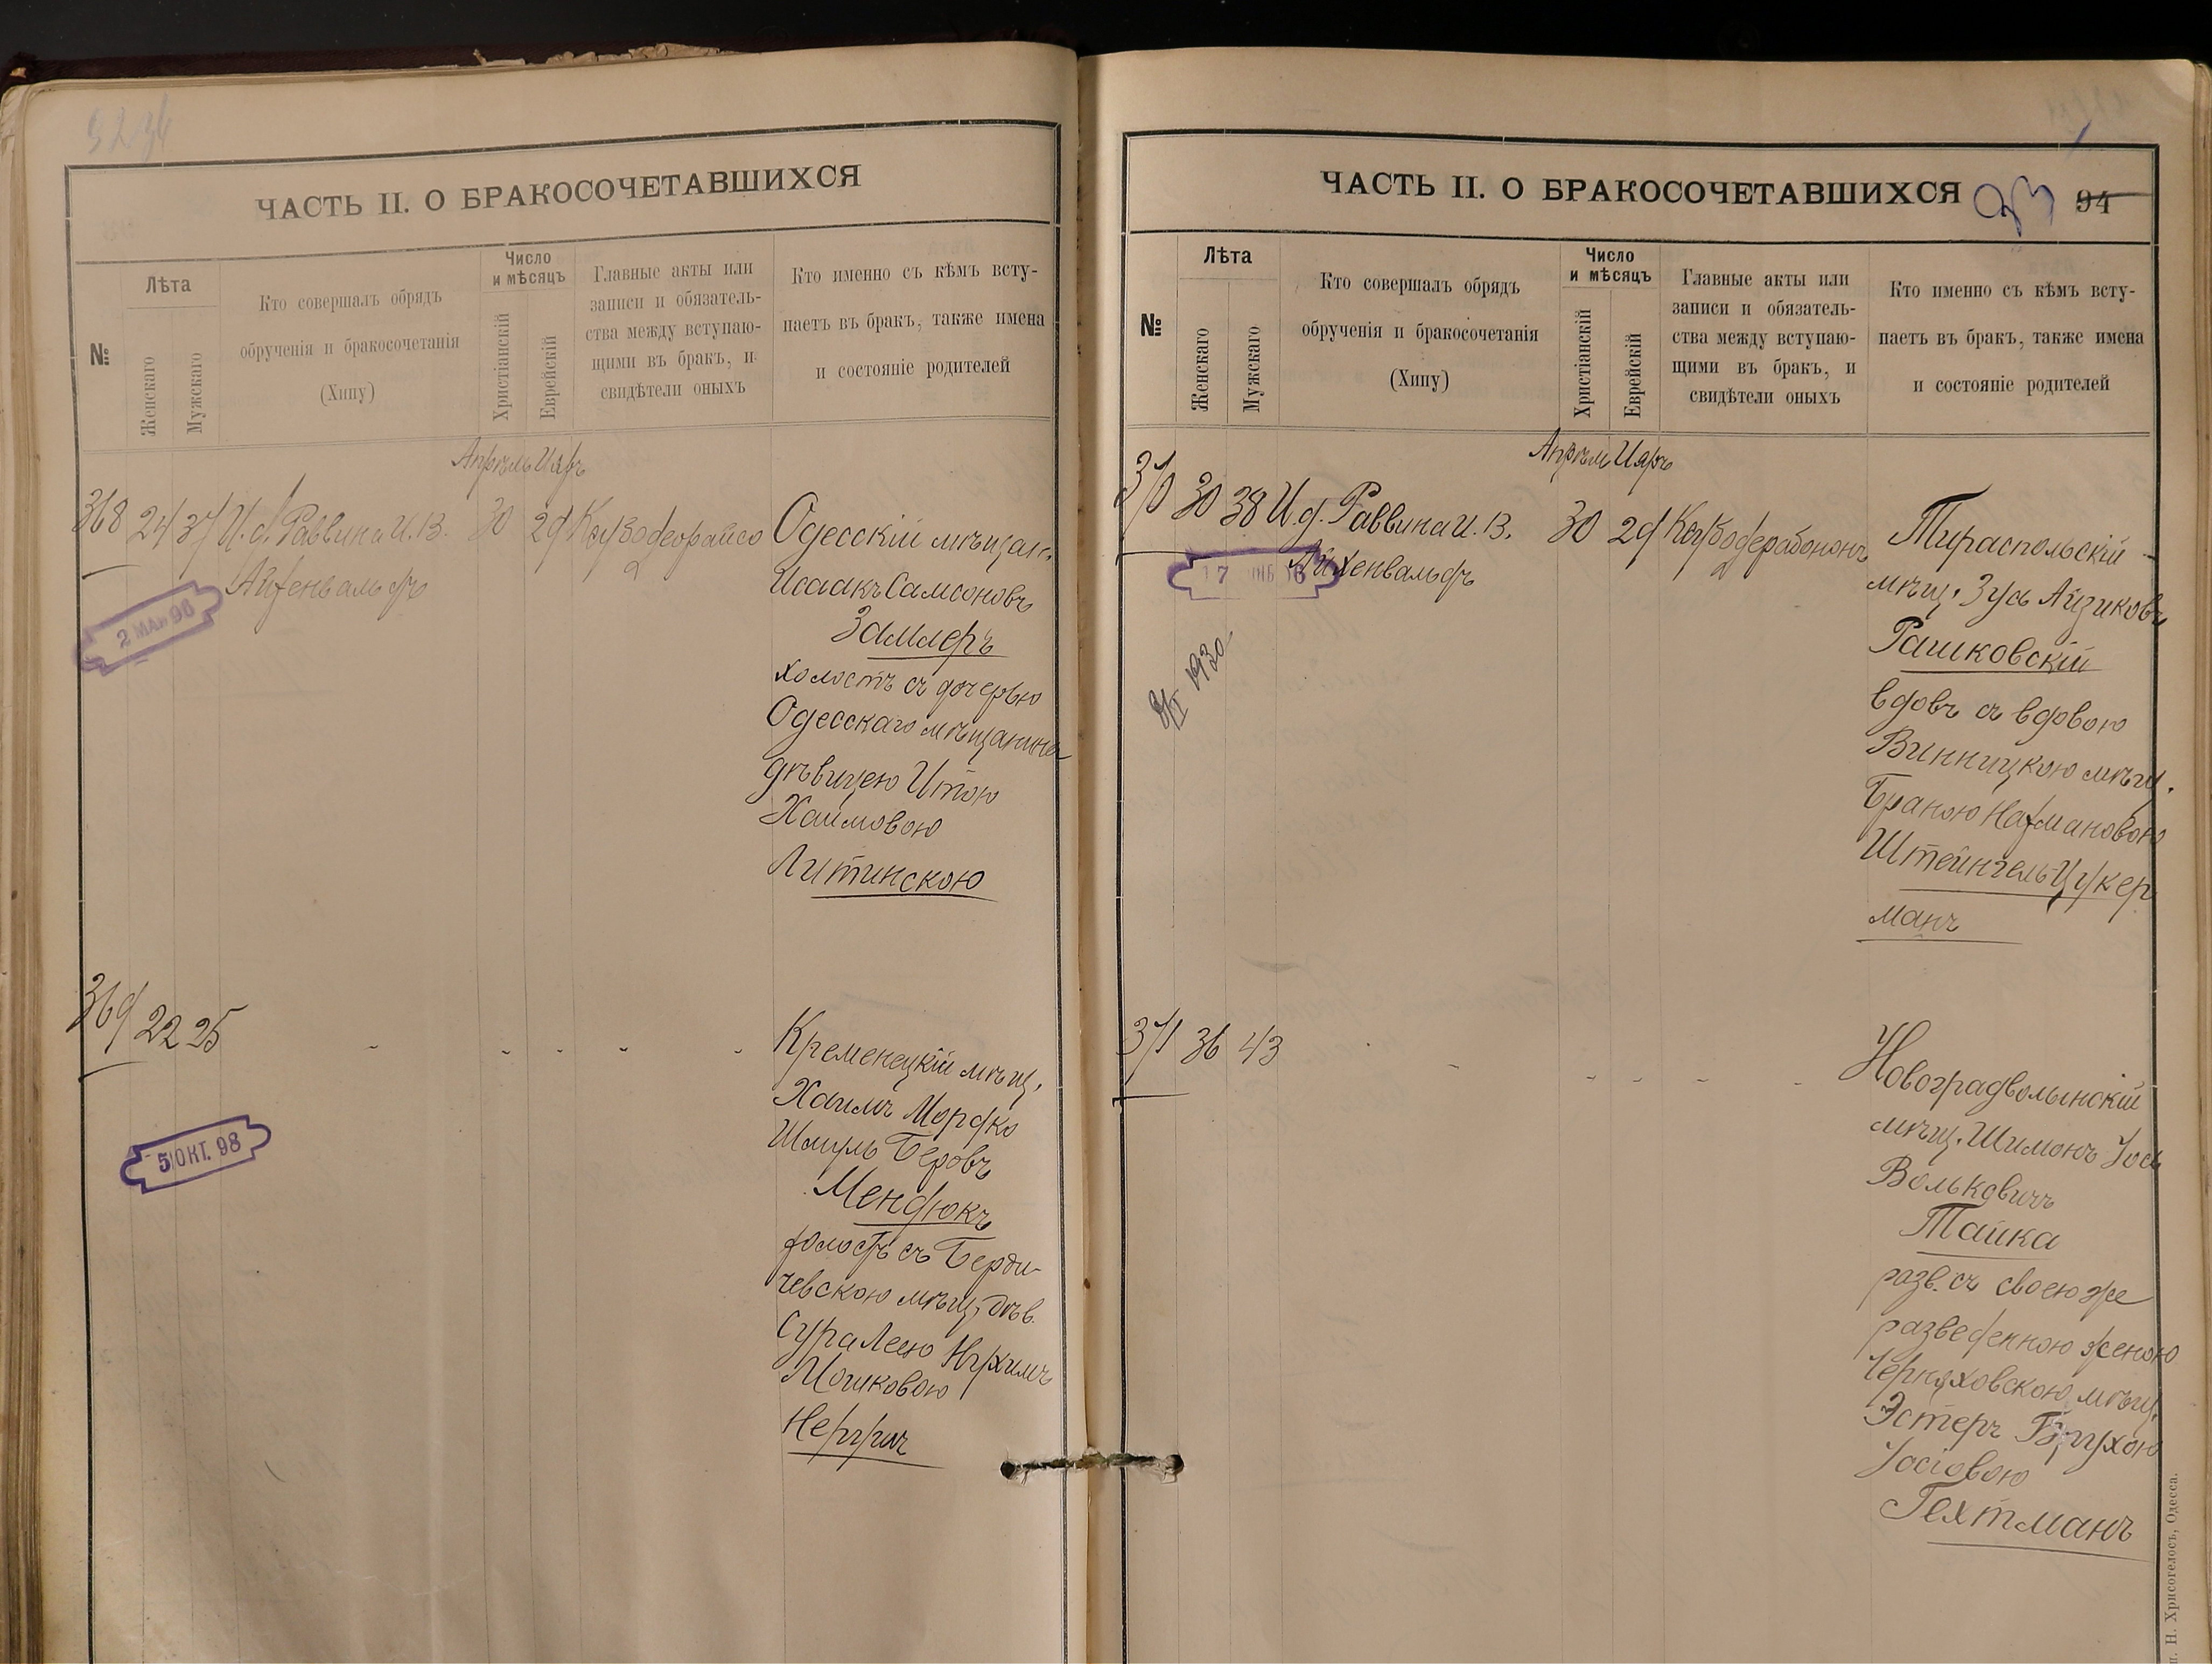 ЧАСТЬ II. О БРАКОСОЧЕТАВШИХСЯ
№
Лѣта
Женскаго
Мужскаго
Кто совершалъ обрядъ
обрученія и бракосочетанія
(Хипу)
Число
и мѣсяцъ
Христіанскій
Еврейскій
Главные акты или
записи и обязатель-
ства между вступаю-
щими въ бракъ, и
свидѣтели оныхъ
Кто именно съ кѣмъ всту-
паетъ въ бракъ, также имена
и состояніе родителей
Апрѣль Ияръ
368 24 37 И. д. Раввина И. В. 30 29
Айхенвальдъ
2 МАЯ 96
Одесскій мѣщан.
Исаакъ Самсоновъ
Замлеръ
холостъ съ дочерью
Одесскаго мѣщанина
дѣвицею Итою
Хаимовою
Литинскою
369 22 25 - - - - -
5 ОКТ. 98
Кременецкій мѣщ.
Хаимъ Мордко
Шмуль Беровъ
Мендюкъ
холостъ съ Берди-
чевскою мѣщ. дѣв.
Сура Леею Нухимъ
Мошковою
ЧАСТЬ II. О БРАКОСОЧЕТАВШИХСЯ
93 94
№
Лѣта
Женскаго
Мужскаго
Кто совершалъ обрядъ
обрученія и бракосочетанія
(Хипу)
Число
и мѣсяцъ
Христіанскій
Еврейскій
Главные акты или
записи и обязатель-
ства между вступаю-
щими въ бракъ, и
свидѣтели оныхъ
Кто именно съ кѣмъ всту-
паетъ въ бракъ, также имена
и состояніе родителей
Апрѣль Ияръ
370 30 38 И. д. Раввина И. В. 30 29
Айхенвальдъ
1930
Тираспольскій
мѣщ. Зусь Айзиковъ
Рашковскій
вдовъ съ вдовою
Винницкою мѣщ.
Браною Нахмановою
Штейнгель-Цукер
манъ
371 36 43 - - - - -
Новоградволынскій
мѣщ. Шимонъ Іось
Вольковичъ
Тайка
разв. съ своею же
разведенною женою
Черняховскою мѣщ.
Эстеръ Брухою
Іосіовою
Гехтманъ
п. Н. Хрисогелосъ, Одесса.